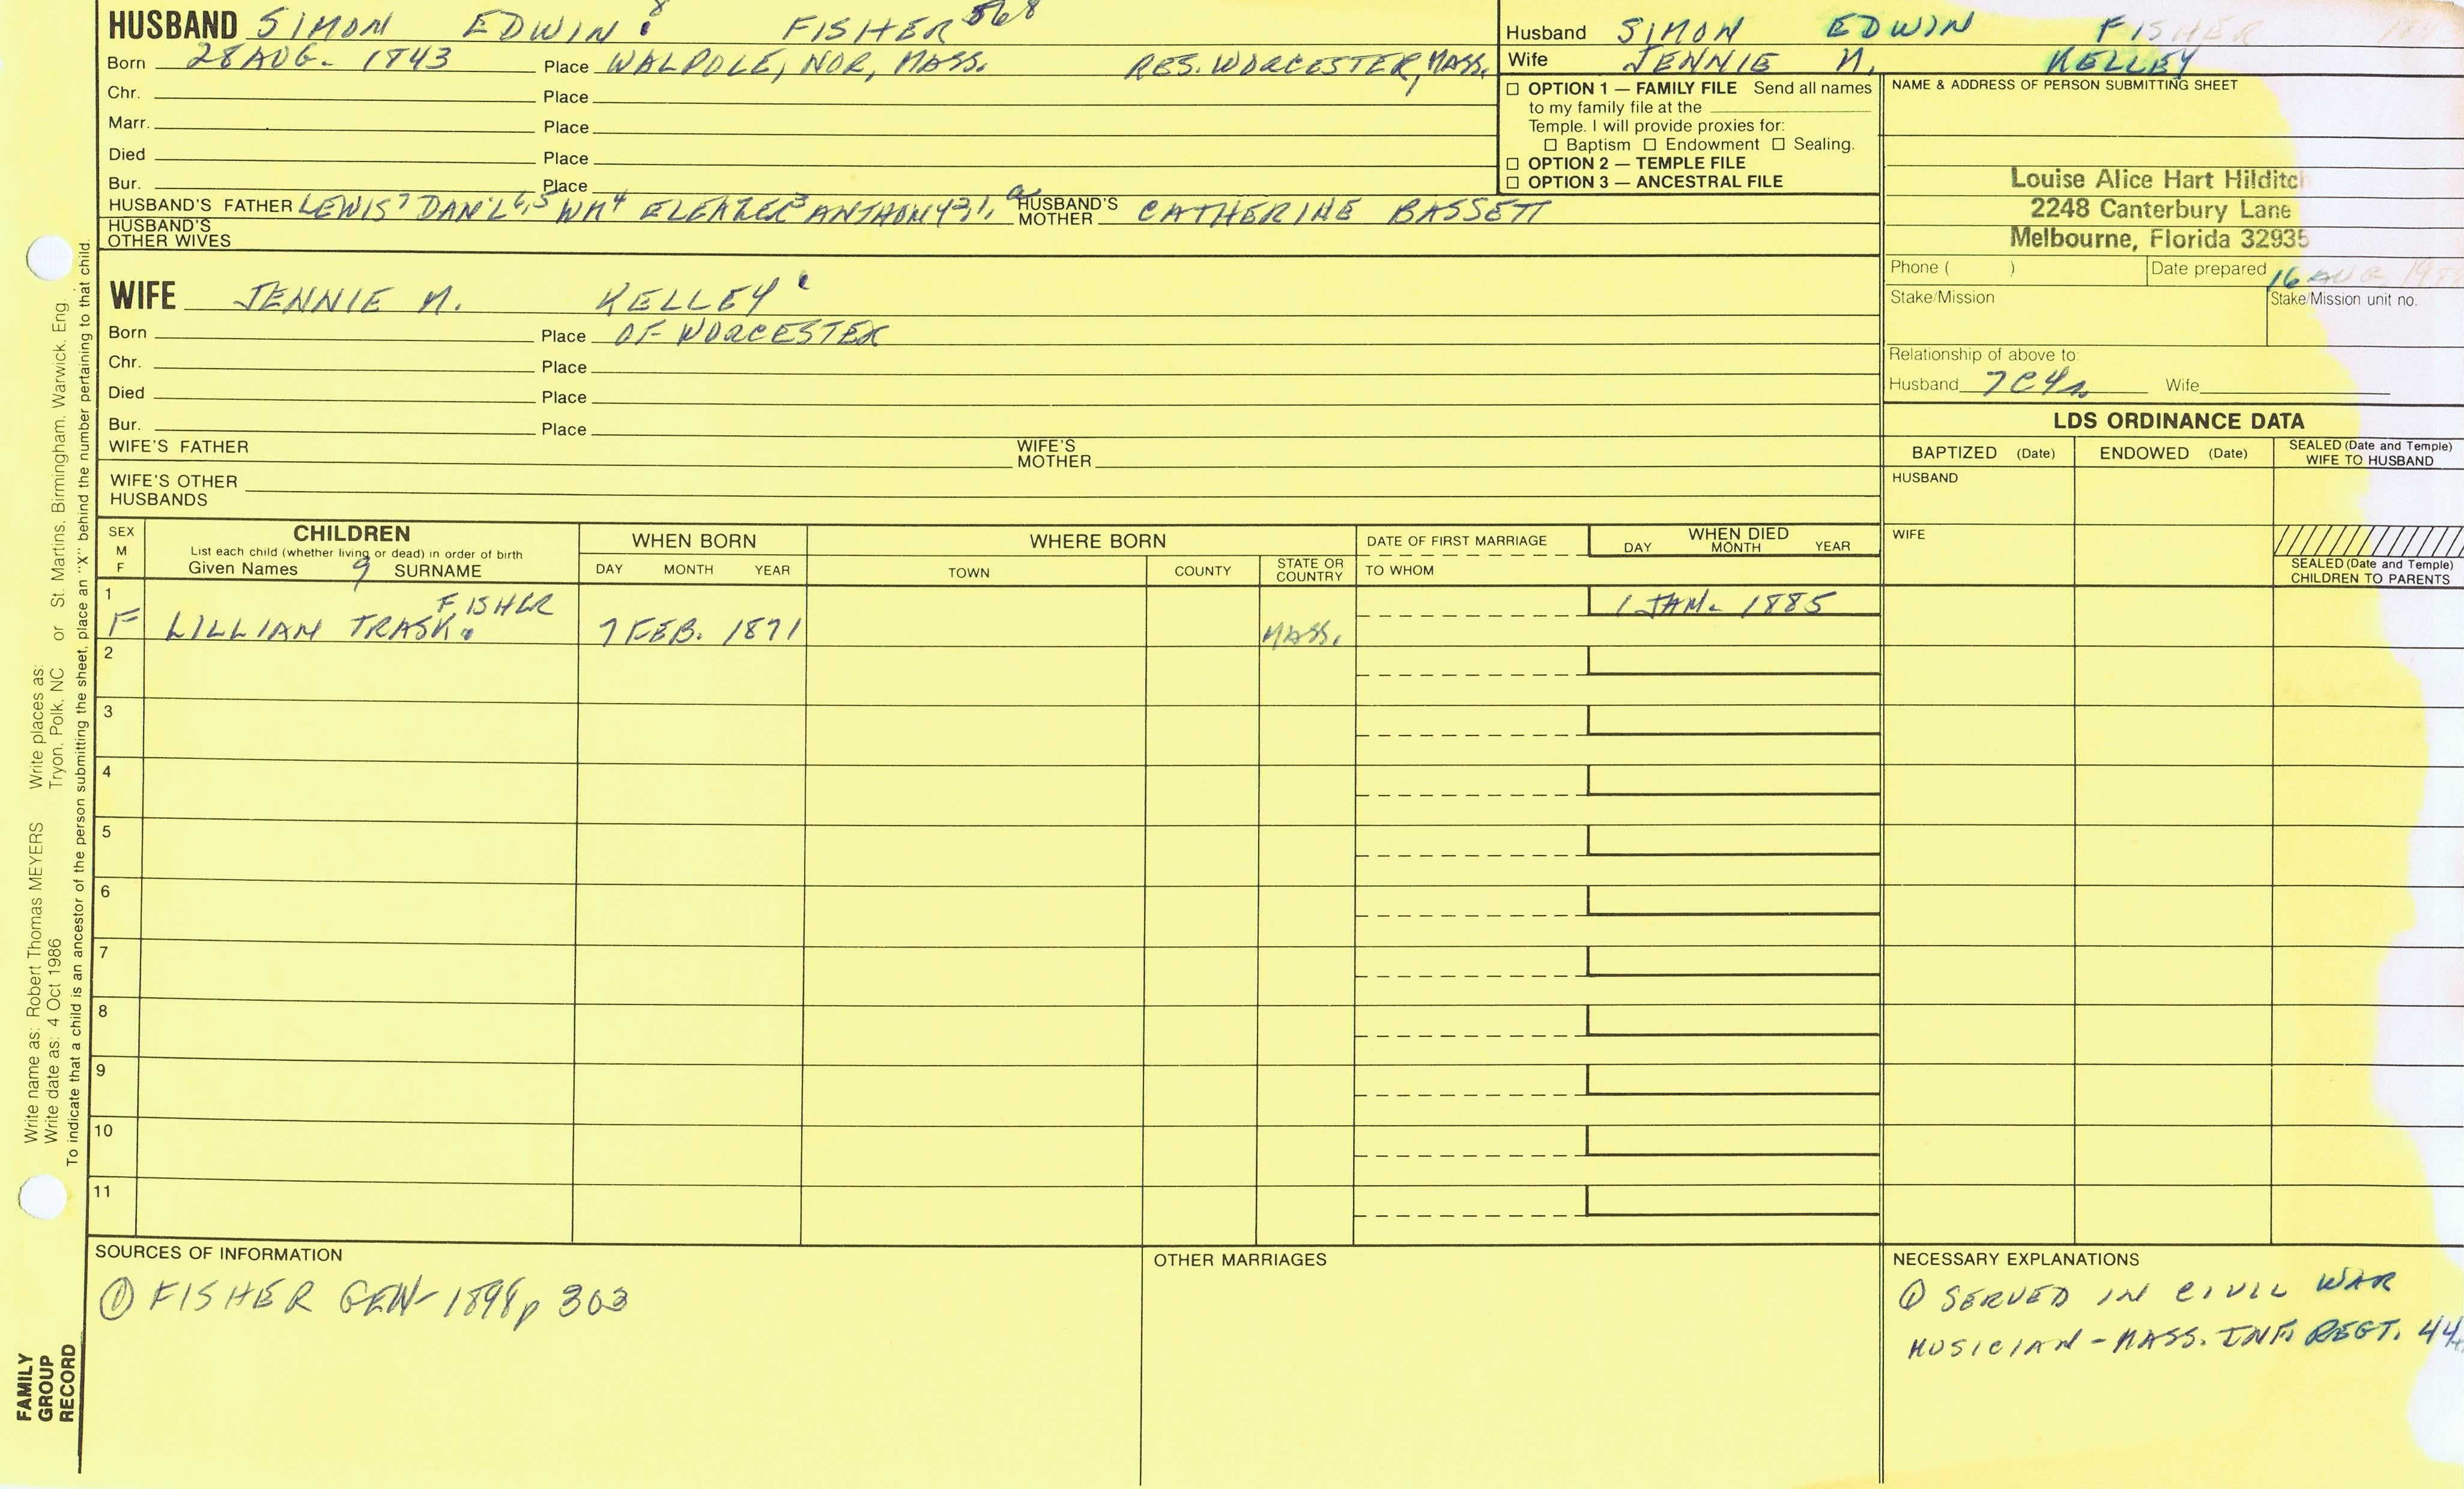 HUSBAND SIMON EDWIN 8 FISHER 568
Born 28 AUG. 1843 Place WALPOLE, NOR, MASS. RES. WORCESTER, MASS.
Chr. Place
Marr. Place
Died Place
Bur. Place
HUSBAND'S FATHER LEWIS7 DAN'L6,5 WM4 ELEAZER3 ANTHONY2,1, a HUSBAND'S MOTHER CATHERINE BASSETT
HUSBAND'S OTHER WIVES
WIFE JENNIE M. KELLEY
Born Place OF WORCESTER
Chr. Place
Died Place
Bur. Place
WIFE'S FATHER WIFE'S MOTHER
WIFE'S OTHER HUSBANDS
Husband SIMON EDWIN FISHER
Wife JENNIE M. KELLEY
OPTION 1 — FAMILY FILE Send all names
to my family file at the
Temple. I will provide proxies for:
Baptism Endowment Sealing.
OPTION 2 — TEMPLE FILE
OPTION 3 — ANCESTRAL FILE
NAME & ADDRESS OF PERSON SUBMITTING SHEET
Louise Alice Hart Hilditch
2248 Canterbury Lane
Melbourne, Florida 32935
Phone ( ) Date prepared 16 AUG
Stake/Mission Stake/Mission unit no.
Relationship of above to:
Husband 7C4R Wife
LDS ORDINANCE DATA
BAPTIZED (Date) ENDOWED (Date) SEALED (Date and Temple) WIFE TO HUSBAND
HUSBAND
WIFE
SEALED (Date and Temple)
CHILDREN TO PARENTS
SEX M F
CHILDREN
List each child (whether living or dead) in order of birth
Given Names 9 SURNAME
WHEN BORN
DAY MONTH YEAR
WHERE BORN
TOWN COUNTY STATE OR COUNTRY
DATE OF FIRST MARRIAGE
TO WHOM
WHEN DIED
DAY MONTH YEAR
1 F LILLIAN TRASK FISHER 7 FEB. 1871 MASS. 1 JAN. 1885
2
3
4
5
6
7
8
9
10
11
SOURCES OF INFORMATION
① FISHER GEN- 1898 p 303
OTHER MARRIAGES
NECESSARY EXPLANATIONS
① SERVED IN CIVIL WAR
MUSICIAN - MASS. INF. REGT. 44
Write name as: Robert Thomas MEYERS Write places as:
Write date as: 4 Oct 1986 Tryon, Polk, NC or St. Martins, Birmingham, Warwick, Eng
To indicate that a child is an ancestor of the person submitting the sheet, place an "X" behind the number pertaining to that child.
FAMILY
GROUP
RECORD